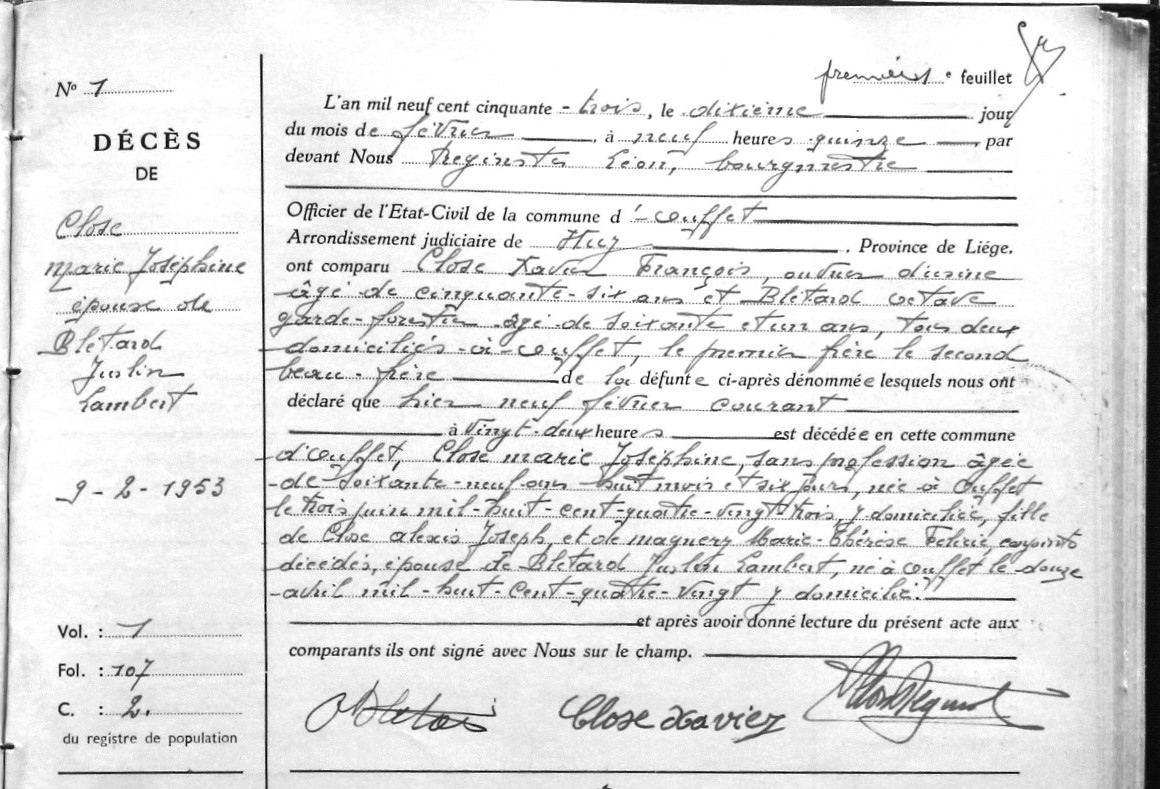 premier e feuillet
Nº 1
DÉCÈS
DE
Close
Marie Joséphine
épouse de
Blétard
Justin
Lambert
9-2-1953
Vol. : 1
Fol. : 107
C. : 2.
du registre de population
L'an mil neuf cent cinquante - trois, le dixième jour
du mois de février, à neuf heures quinze, par
devant Nous Léon, bourgmestre
Officier de l'Etat-Civil de la commune d'Ouffet
Arrondissement judiciaire de Huy. Province de Liége.
ont comparu Close Xavier François, ouvrier d'usine
âgé de cinquante-six ans et Blétard Octave
garde-forestier âgé de soixante et un ans, tous deux
domiciliés à Ouffet, le premier frère le second
beau-frère de la défunte ci-après dénommée lesquels nous ont
déclaré que hier neuf février courant
à vingt-deux heures est décédée en cette commune
d'Ouffet, Close Marie Joséphine, sans profession âgée
de soixante-neuf ans huit mois et six jours, née à Ouffet
le trois juin mil-huit-cent-quatre-vingt-trois, y domiciliée, fille
de Close Alexis Joseph, et de Maguery Marie-Thérèse Félicie, conjoints
décédés, épouse de Blétard Justin Lambert, né à Ouffet le douze
avril mil-huit-cent-quatre-vingt y domicilié.
et après avoir donné lecture du présent acte aux
comparants ils ont signé avec Nous sur le champ.
OBletard Close Xavier